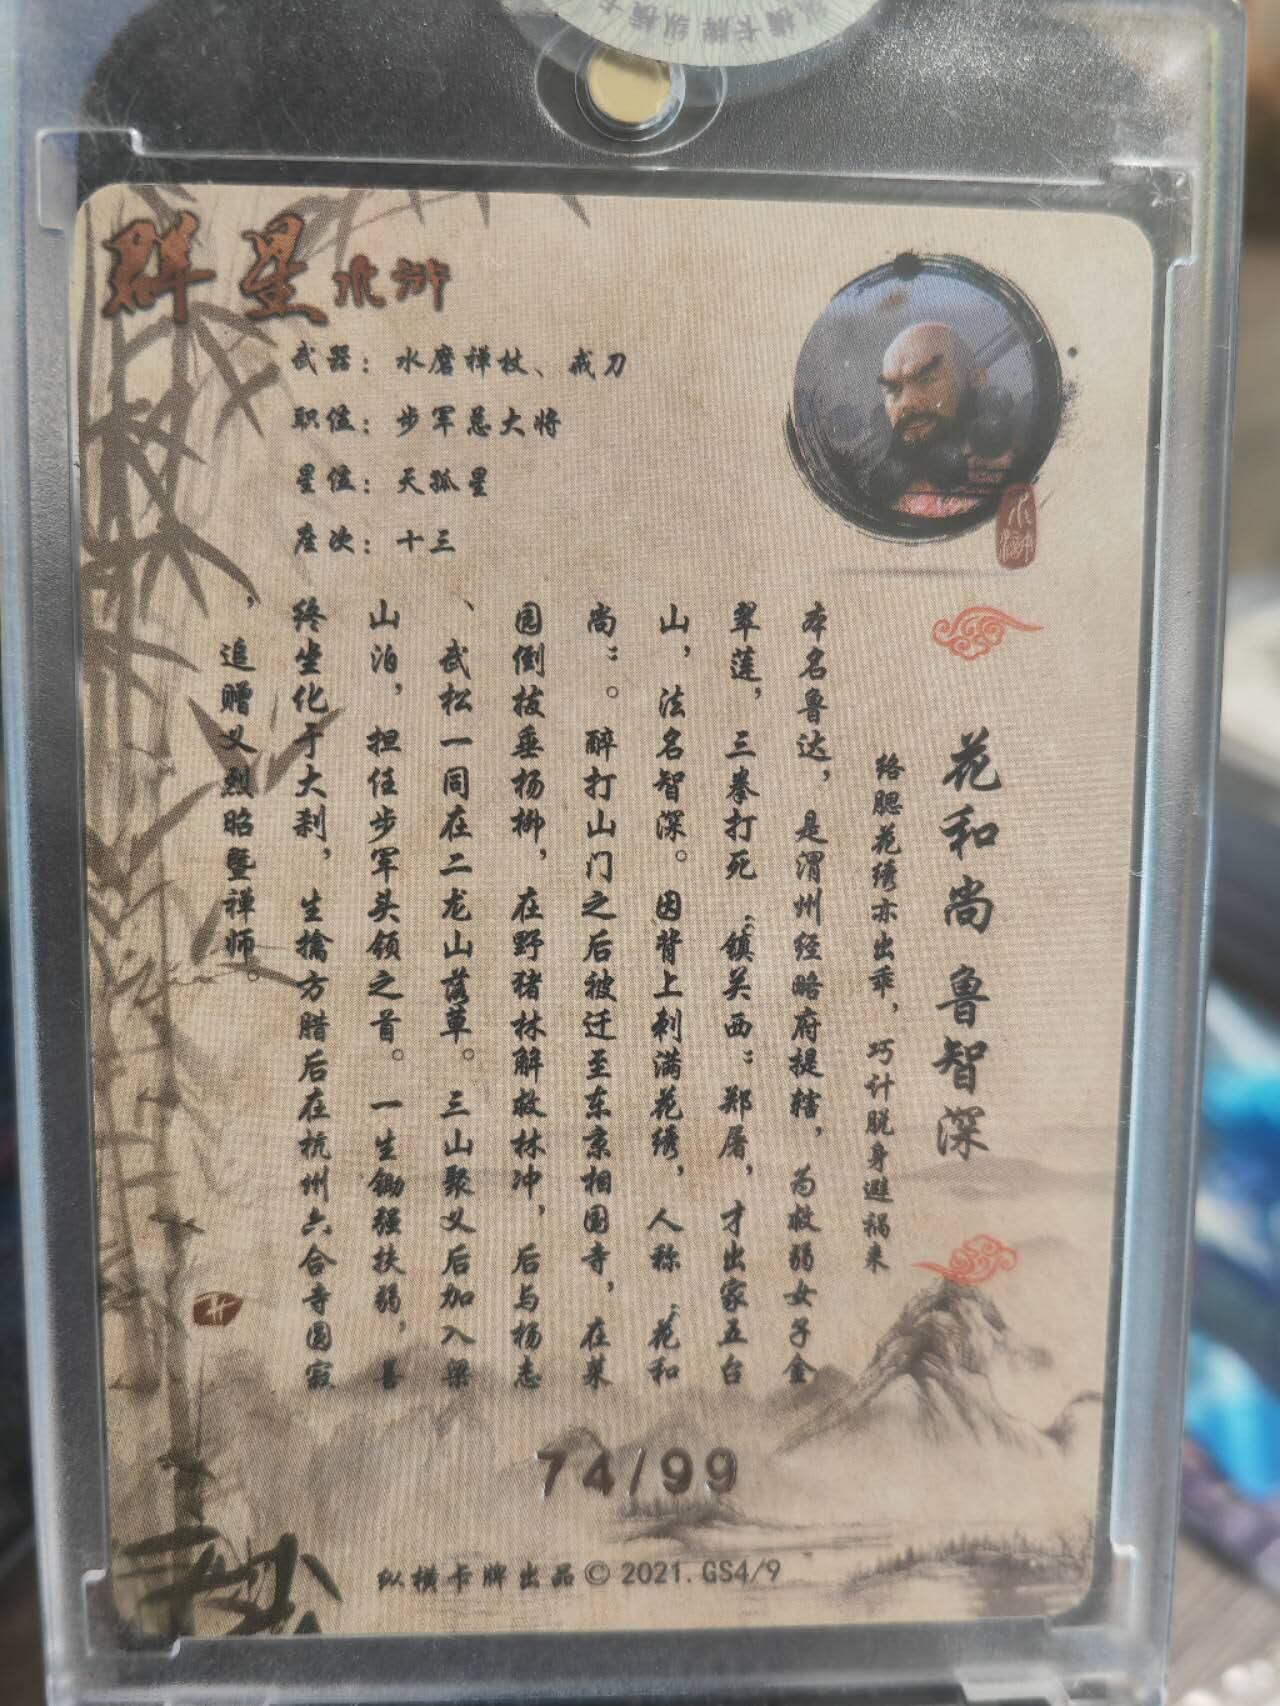 纵横卡牌纵横卡
群星水浒
武器：水磨禅杖、戒刀
职位：步军总大将
星位：天孤星
座次：十三
水浒
花和尚 鲁智深
络腮花绣亦出乖，巧计脱身避祸来
本名鲁达，是渭州经略府提辖，为救弱女子金
翠莲，三拳打死“镇关西”郑屠，才出家五台
山，法名智深。因背上刺满花绣，人称“花和
尚”。醉打山门之后被迁至东京相国寺，在菜
园倒拔垂杨柳，在野猪林解救林冲，后与杨志
、武松一同在二龙山落草。三山聚义后加入梁
山泊，担任步军头领之首。一生锄强扶弱，喜
终坐化于大刹，生擒方腊后在杭州六合寺圆寂
，追赠义烈昭暨禅师。
74/99
纵横卡牌出品© 2021.GS4/9